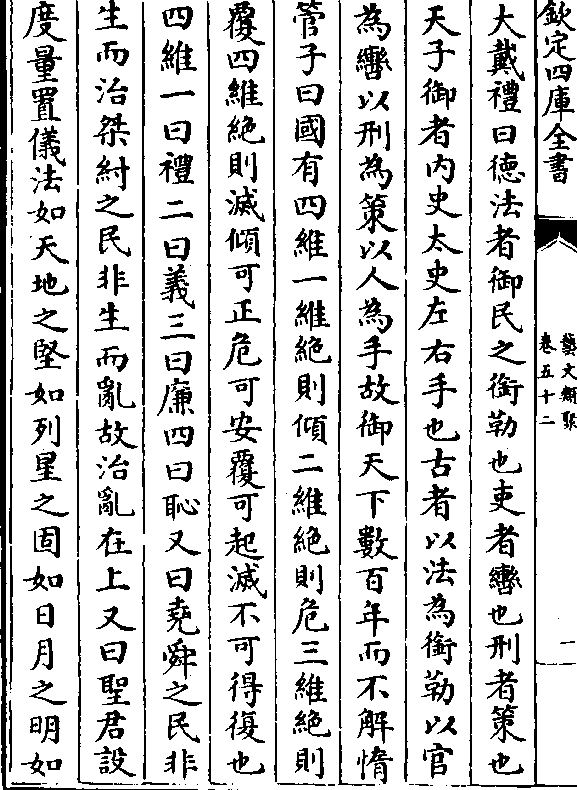 欽定四庫全書
藝文類聚
卷五十二
一
大戴禮曰德法者御民之銜勒也吏者轡也刑者策也
天子御者内史太史左右手也古者以法為銜勒以官
為轡以刑為策以人為手故御天下數百年而不解惰
管子曰國有四維一維絶則傾二維絶則危三維絶則
覆四維絶則滅傾可正危可安覆可起滅不可得復也
四維一曰禮二曰義三曰廉四曰恥又曰堯舜之民非
生而治桀紂之民非生而亂故治亂在上又曰聖君設
度量置儀法如天地之堅如列星之固如日月之明如